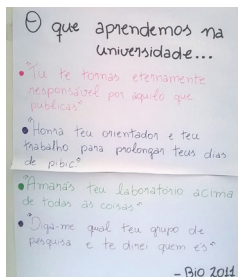 O que aprendemos na
universidade...
• "Tu te tornas eternamente
responsável por aquilo que
publicas"
• "Honra teu orientador e teu
trabalho para prolongar teus dias
de pibic"
• "Amarás teu laboratório acima
de todas as coisas"
• "Diga-me qual teu grupo de
pesquisa e te direi quem és"
- BIO 2011